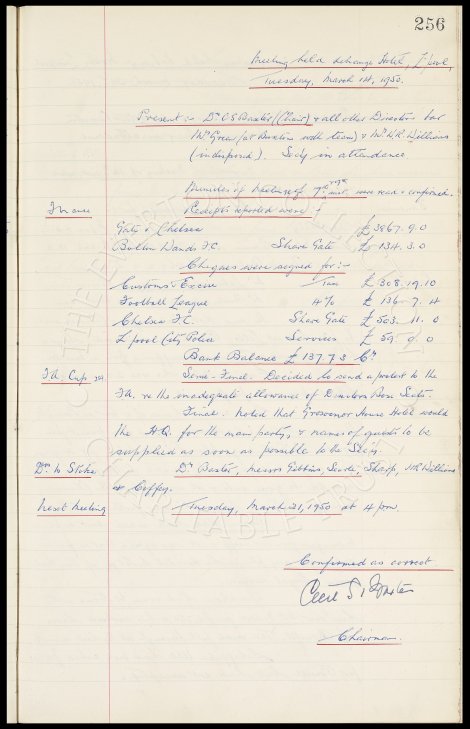 256
Meeting held Exchange Hotel, L'pool,
Tuesday, March 1st, 1950.
Present :- Dr C S Baxter (Chair) & all other Directors bar
Mr Green (at Buxton with team) & Mr W.R. Williams
(indisposed). Secty in attendance.
Minutes of Meeting of 7th inst. were read & confirmed.
Finance
Receipts reported were :-
Gate v Chelsea £3867. 9. 0
Bolton Wands F.C. Share Gate £134. 3. 0
Cheques were signed for :-
Customs & Excise Tax £ 308. 19. 10
Football League 4% £ 136. 7. 4
Chelsea F.C. Share Gate £ 503. 11. 0
L'pool City Police Services £ 59. 0
Bank Balance £ 13773 Cr
F.A. Cup
Semi-Final. Decided to send a protest to the
F.A. re the inadequate allowance of Directors Box Seats.
Final. Noted that Grosvenor House Hotel would
be H.Q. for the main party, & names of guests to be
supplied as soon as possible to the Secty.
Dn to Stoke
Dr Baxter, messrs Gibbins, Searle, Sharp, W.R Williams
or Coffey.
Next Meeting
Tuesday, March 21, 1950 at 4 pm
Confirmed as correct
Cecil S. Baxter
Chairman.
THE EVERTON COLLECTION
CHARITABLE TRUST